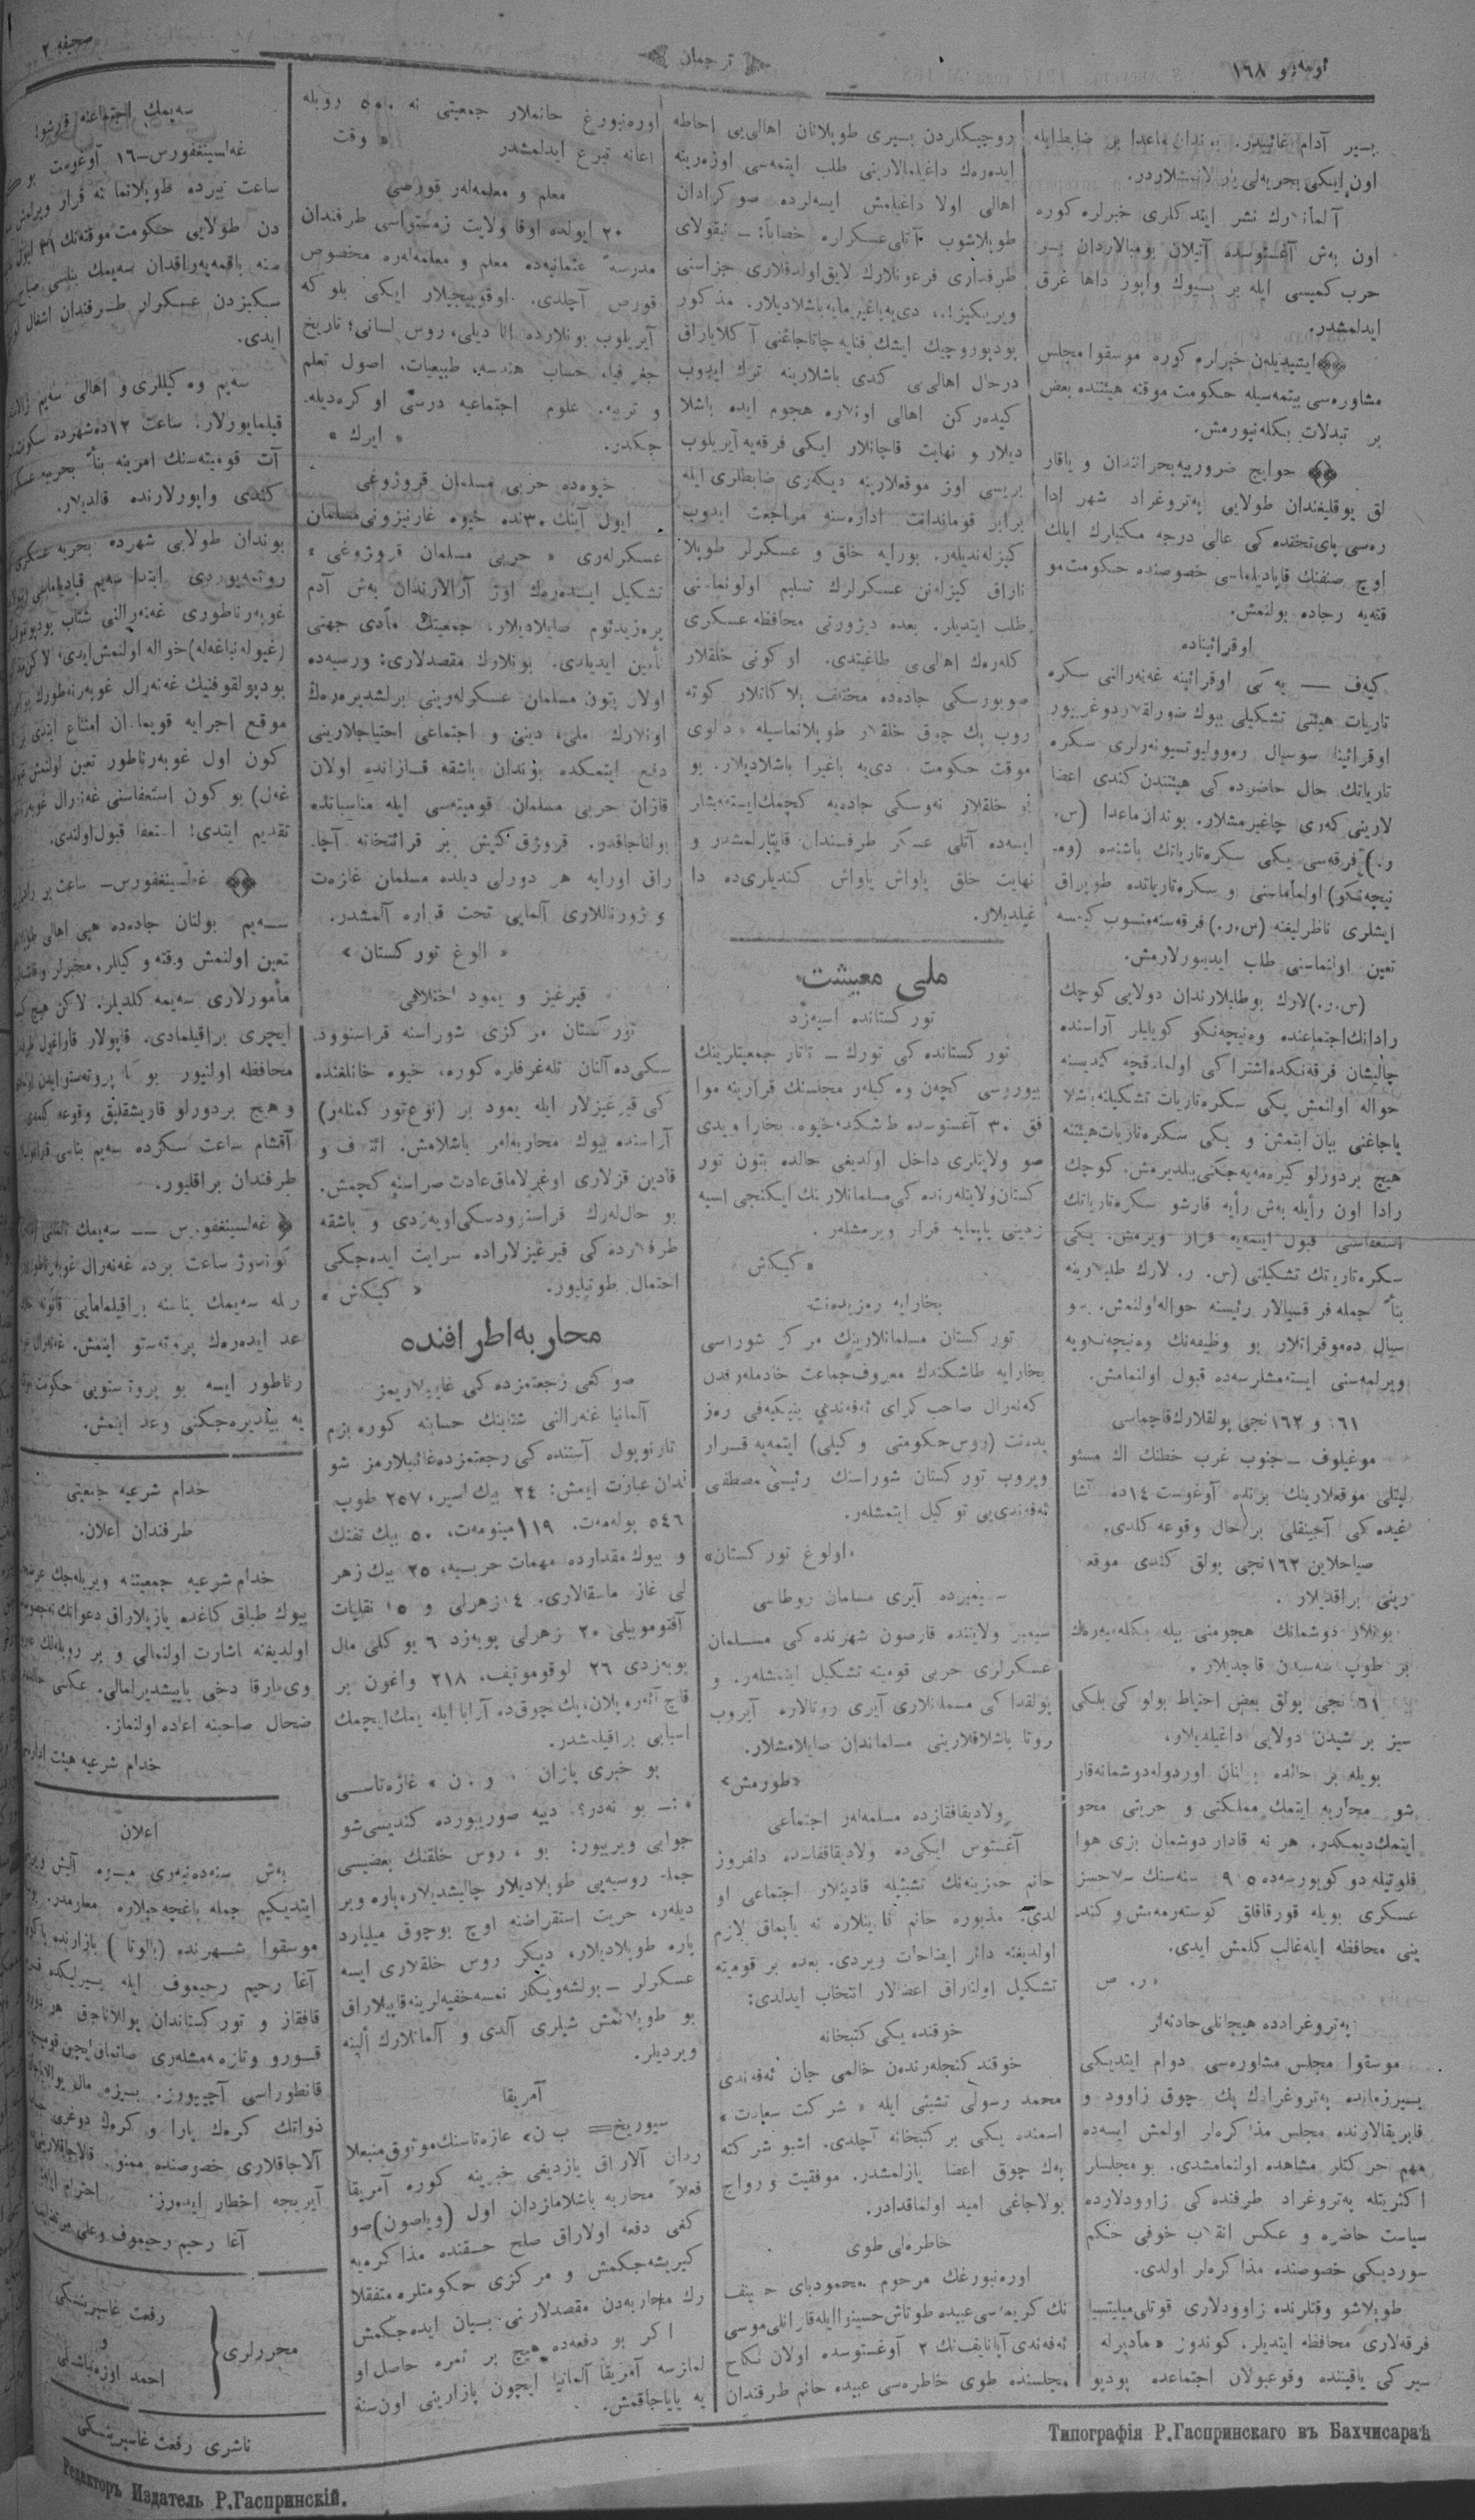 نومەرو ١٦٨
ترجمان
صحیفه ٢
بسیر آدام غائبیدر. بوندان ماعدا بر ضابط ایله
اون ایکی بحریه‌لی یارالانمشلاردر.
آلمانلارك نشر ایتدكلری خبرلره كوره
اون بەش آغستوسده آتیلان بومبالاردان بر
حرب كمیسی ایله بر بیوك واپور داها غرق
ایدلمشدر.
ایشیدیلەن خبرلره كوره موسقوا مجلس
مشاوره‌سی بیتمه‌سیله حكومت موقته هیئتنده بعض
بر تبدلات بكله‌نیورمش.
حوایج ضروریه بحرانندان و یاقار
لق یوقلیغندان طولایی پەتروغراد شهر ادا
ره‌سی پای‌تختده‌كی عالی درجه مكتبلرك ایلك
اوچ صنفنك قاپادیلماسی خصوصنده حكومت مو
قته‌یه رجاده بولنمش.
اوقرائیناده
كیەف — یه‌كی اوقرائینه غەنەرالنی سكره
تاریات هیئتی تشكیلی بیوك ضورلقلار دوغریبور
اوقرائینا سوسیال رەوولیوتسیونەرلری سكره
تاریاتك حال حاضرده كی هیئتندن كندی اعضا
لارینی كەری چاغیرمشلار. بوندان ماعدا (س.
ر.) فرقه‌سی یكی سكره‌تاریاتك باشنده (وه‌
نیچەنكو) اولماماسنی و سكره‌تاریاتده طوپراق
ایشلری ناظرلیغنه (س.ر.) فرقه‌سنه منسوب كیمسه
تعین اولنماسنی طلب ایدییورلارمش.
(س.ر.)لارك بو طلبلارندان دولایی كوچك
رادانك اجتماعنده وه‌نیچەنكو كوبلیلر آراسنده
چالیشان فرقه‌نكده اشتراكی اولمادقچه كندیسنه
حواله اولنمش یكی سكره‌تاریات تشكیلنه باشلا
یاجاغنی بیان ایتمش و یكی سكره‌تاریات هیئتنه
هیچ بر دورلو كیره‌مه‌یه‌جكنی بلدیرمش. كوچك
رادا اون رأیله بەش رأیه قارشو سكره‌تاریاتك
استعفاسنی قبول ایتمه‌یه قرار ویرمش. یكی
سكره‌تاریاتك تشكیلنی (س. ر. لارك طلبلارینه
بنأ جمله فرقسیالار رئیسنه حواله اولنمش. سو
سیال دەموقراتلار بو وظیفه‌نك وه‌نیچه‌نكویه
ویرلمه‌سنی ایسته‌مشلرسه‌ده قبول اولنمامش.
١٦١ و ١٦٢ نجی پولقلارك قاچماسی
موغیلوف — جنوب غرب خطنك اك مسئو
لیتلی موقعلارینك برنده آوغوست ١٤ده آشا
غیده كی آجینقلی بر حال وقوعه كلدی.
صباحلاین ١٦٢ نجی پولق كندی موقعه
رینی براقدیلار.
بونلار دوشمانك هجومنی بیله بكله‌میه‌رك
بر طوپ سه‌سیدن قاچدیلار.
١٦١ نجی پولق بعض احتیاط بولو كی بلكی
سیز بر شیدن دولایی داغیلدیلار.
بویله بر حالده بولنان اوردوله دوشمانه قار
شو محاربه ایتمك مملكتی و حریتی محو
ایتمك دیمكدر. هر نه قادار دوشمان بزی هوا
فلوتیله دو كویورسه‌ده ١٩٠٥ سنه‌سنك سلاحسز
عسكری بویله قورقاقلق كوسته‌رمه‌مش و كند
ینی محافظه ایله غالب كلمش ایدی.
ر. ص
پەتروغرادده هیجانلی حادثه‌لر
موسقوا مجلس مشاوره‌سی دوام ایتدیكی
بسیر زمانده پەتروغرادك پك چوق زاوود و
فابریقالارنده مجلس مذاكره‌لر اولمش ایسه‌ده
مهم حركتلر مشاهده اولنمامشدی. بو مجلسلر
اكثریتله پەتروغراد طرفنده كی زاوودلارده
سیاست حاضره و عكس انقلاب خوفی حكم
سوردیكی خصوصنده مذاكره‌لر اولدی.
طوپلاشو وقتلرنده زاوودلاری قوتلی میلیتسیا
فرقه‌لاری محافظه ایتدیلر. كوندوز «مادیرله
سیركی یاقیننده وقوعبولان اجتماعده پودپو
روچیكلردن بسیری طوپلانان اهالی‌یی احاطه
ایده‌ره‌ك داغیلمالارینی طلب ایتمه‌سی اوزەرینه
اهالی اولا داغیلمش ایسه‌لرده صوكرادان
طوپلاشوب آتلی عسكرلره خطاباً: — نیقولای
طرفداری فرعونلارك لایق اولدقلاری جزاسنی
ویریكیز!.، دییه باغیرمایه باشلادیلار. مذكور
پودپوروچیك ایشك فنایه چاتاجاغنی آكلایاراق
درحال اهالی‌یی كندی باشلارینه ترك ایدوب
كیدەركن اهالی اونلاره هجوم ایده باشلا
دیلار و نهایت قاچانلار ایكی فرقه‌یه آیریلوب
بریسی اوز موقعلارینه دیكەری ضابطلری ایله
برابر قوماندانت اداره‌سنه مراجعت ایدوب
كیزلەندیلەر. بورایه خلق و عسكرلر طوپلا
ناراق كیزلەنن عسكرلرك تسلیم اولونماسنی
طلب ایتدیلر. بعده دیژورنی محافظه عسكری
كله‌ره‌ك اهالی‌یی طاغیتدی. او كونی خلقلار
صوبورسكی جاده‌ده مختلف پلاكاتلار كوته
روب پك چوق خلقلار طوپلانماسیله «دلوی
موقت حكومت» دییه باغیرا باشلادیلار. بو
خلقلار نەوسكی جاده‌یه كچمك ایسته‌مشلر
ایسه‌ده آتلی عسكر طرفندان قایتارلمشدر و
نهایت خلق یاواش یاواش كندیلری‌ده دا
غیلدیلار.
ملی معیشت
توركستانده اسیه‌زد
توركستانده كی تورك — تاتار جمعیتلرینك
بیوروسی كچەن وەكیلەر مجلسنك قرارینه موا
فق ٣٠ آغستوسده طاشكندده خیوه، بخارا ویدی
صو ولایتلری داخل اولدیغی حالده بتون تور
كستان ولایتلەرنده كی مسلمانلارنك ایكنجی اسیه
زدینی یاپمایه قرار ویرمشلەر.
«كیڭاش»
بخارایه رەزیدەنت
توركستان مسلمانلارینك مركز شوراسی
بخارایه طاشكندك معروف جماعت خادملەرندن
كەنەرال صاحب كرای ئەفەندی ینیكیەفی رەز
یدەنت (روس حكومتی وكیلی) ایتمه‌یه قرار
ویروب توركستان شوراسنك رئیسی مصطفی
ئەفەندی‌یی توكیل ایتمشلەر.
«اولوغ توركستان»
سیمبیرده آیری مسلمان روطاسی
سیمبیر ولایتنده قارصون شهرنده كی مسلمان
عسكرلری حربی قومیته تشكیل ایتمشلەر. و
پولقدا كی مسلمانلاری آیری روتالاره آیروب
روتا باشلاقلارینی مسلماندان صایلامشلار.
«طورمش»
ولادیقافقازده مسلمه‌لەر اجتماعی
آغستوس ایكی‌ده ولادیقافقاسده دلفروز
خانم حمزینه‌نك تشبثیله قادینلار اجتماعی او
لدی. مذبوره خانم قادینلاره نه یاپماق لازم
اولدیغنه دائر ایضاحات ویردی. بعده بر قومیته
تشكیل اولناراق اعضالار انتخاب ایدلدی:
خوقنده یكی كتبخانه
خوقند كنجلەرندەن خالمی جان ئەفەندی
محمد رسولی تشبثی ایله «شركت سعادت»
اسمنده یكی بر كتبخانه آچلدی. اشبو شركته
پەك چوق اعضا یازلمشدر. موفقیت و رواج
بولاجاغی امید اولماقدادر.
خاطره‌لی طوی
اورەنبورغك مرحوم محمودبای حنیف
نك كریمه‌سی عبیده طوتاش حسینوا ایله قازانلی موسی
ئەفەندی آپانایف‌نك ٢ آوغستوسده اولان نكاح
مجلسنده طوی خاطره‌سی عبیده خانم طرفندان
اورەنبورغ خانملار جمعیتی نه ٥٠٠ روبله
اعانه تبرع ایدلمشدر. «وقت»
معلم و معلمه‌لەر قورصی
٢٠ ایولده اوفا ولایت زمستواسی طرفندان
مدرسه عثمانیه‌ده معلم و معلمه‌لەره مخصوص
قورص آچلدی. اوقویجیلار ایكی بلوكه
آیریلوب بونلارده آنا دیلی، روس لسانی، تاریخ
جغرفیا، حساب هندسه، طبیعیات، اصول تعلم
و تربیه، علوم اجتماعیه درسی اوكره‌دیله‌
جكدر. «ایرك»
خیوه‌ده حربی مسلمان قروژوغی
ایول آینك ٣٠نده خیوه غارنیزونی مسلمان
عسكرلەری «حربی مسلمان قروژوغی»
تشكیل ایده‌رەك اوز آرالارندان بەش آدم
پرەزیدئوم صایلادیلار. جمعیتك مادی جهتی
تأمین ایدیلدی. بونلارك مقصدلاری: روسیه‌ده
اولان بتون مسلمان عسكرلەرینی برلشدیرەرەك
اونلارك ملی، دینی و اجتماعی احتیاجلارینی
دفع ایتمكده بوندان باشقه قازانده اولان
قازان حربی مسلمان قومیته‌سی ایله مناسباتده
بولناجاقدر. قروژق كتیش بر قرائتخانه آچا
راق اورایه هر دورلی دیلده مسلمان غازه‌ت
و ژورناللاری آلمایی تحت قراره آلمشدر.
«الوغ توركستان»
قیرغیز و یمود اختلافی
توركستان مركزی شوراسنه قراسنوود
سكی‌ده آلنان تله‌غرفلره كوره، خیوه خانلغنده
كی قیرغیزلار ایله یمود بر (نوع توركمنلەر)
آراسنده بیوك محاربه‌لەر باشلامش. اتلاف و
قادین قزلاری اوغیرلاماق عادت صراسنه كچمش.
بو حال‌لەرك قراسنوودسكی اویەزدی و باشقه
طرفلارده كی قیرغیزلاراده سرایت ایده‌جكی
احتمال طوتیلیور. «كیڭاش»
محاربه اطرافنده
صوكغی رجعتمزده كی غایبلاریمز
آلمانیا غەنەرالنی شتابنك حسابنه كوره بزم
تارنوپول آستنده كی رجعتمزده غائبلارمز شو
ندان عبارت ایمش: ٢٤ بیك اسیر، ٢٥٧ طوپ
٥٤٦ پولەمەت. ١١٩ مینومەت، ٥٠ بیك تفنك
و بیوك مقدارده مهمات حربیه، ٢٥ بیك زهر
لی غاز ماسقالاری. ١٤ زهرلی و ١٥ نقلیات
آفتوموبیلی ٢٠ زهرلی پویەزد ٦ یوكلی مال
پویەزدی ٢٦ لوقوموتیف، ٢١٨ واغون بر
قاچ آئەروپلان، پك چوق‌ده آرابا ایله یمك ایچمك
اسبابی براقیلمشدر.
بو خبری یازان «و. ن» غازەتاسی
— بو نەدر؟. دییه صوریبورده كندیسی شو
جوابی ویریبور: بو، روس خلقنك بعضیسی
جمله روسیه‌یی طوپلادیلار چالیشدیلار، پاره ویر
دیلەر، حریت استقراضنه اوچ بوچوق میلیارد
پاره طوپلادیلار، دیكر روس خلقلاری ایسه
عسكرلر — بولشەویكلر نمسه خفیه‌لرینه قاپیلاراق
بو طوپلانمش شیلری آلدی و آلمانلارك ألینه
ویردیلر.
آمریقا
سیوریخ = «ب ن» غازەتاسنك موثوق منبعلا
ردان آلاراق یازدیغی خبرینه كوره آمریقا
فعلاً محاربه باشلامازدان اول (ویلصون) صو
كغی دفعه اولاراق صلح حقنده مذاكره‌یه
كیریشه‌جكمش و مركزی حكومتلره متفقلا
رك محاربه‌دن مقصدلارنی بسیان ایده‌جكمش
اكر بو دفعه‌ده هیچ بر ثمره حاصل او
لمازسه آمریقا آلمانیا ایچون پازارینی اون سنه
یه یاپاجاقمش.
سەیمك اجتماعنه قارشو!
غەلسینغفورس — ١٦ آوغوست
ساعت بیرده طوپلانما نه قرار ویرلمش
دن طولایی حكومت موقته‌نك ٣١ ایول
سنه باقمه‌یه‌راقدان سەیمك بناسی صباح
سكیزدن عسكرلر طرفندان اشغال
ایدی.
سەیم وەكیللری و اهالی سەیم
قیلمایورلار: ساعت ١٢ده شهرده سكونت
آت قومیته‌سنك امرینه بنأ بحریه عسكر
كندی واپورلارنده قالدیلار.
بوندان طولایی شهرده بحریه عسكری
غوبەرناطوری غەنەرالنی شتاب پودپولقوف
(رغیوله نباغەله) حواله اولنمش ایدی، لاكن
پودپولقوفنیك غەنەرال غوبەرنەطورك
موقع اجرایه قویمادان امتناع ایتدی
كون اول غوبەرناطور تعین اولنمش
غەل) بو كون استعفاسنی غەنەرال غوبەر
تقدیم ایتدی! استعفا قبول اولندی.
غەلسینغفورس — ساعت بر
سەیم بولنان جاده‌ده هپی اهالی
تعین اولنمش وقته وكیللر، مخبرلر
مأمورلاری سەیمه كلدیلر. لاكن هیچ
ایچری براقیلمادی. قاپولار قاراغول
محافظه اولنیور بوكا پروته‌ستو ایدن
و هیچ بردورلو قاریشقلیق وقوعه كلمدی.
آقشام ساعت سكزده سەیم بناسی
طرفندان براقلیور.
غەلسینغفورس — سەیمك
طوقوز ساعت برده غەنەرال غوبەرناطور
رلمه سەیمك بناسنه براقیلمامایی قانونه
عد ایدەرەك پروته‌ستو ایتمش.
رناطور ایسه بو پروته‌ستویی حكومت
یه بیلدیره‌جكنی وعد ایتمش.
خدام شرعیه جمعیتی
طرفندان اعلان.
خدام شرعیه جمعیتنه ویریله‌جك
بیوك طباق كاغده یازیلاراق دعوانك
اولدیغنه اشارت اولنمالی و بر روبله‌لك
وی مارقا دخی یاپیشدیرلمالی. عكسی
ضحال صاحبنه اعاده اولنماز.
خدام شرعیه هیئت اداره
اعلان
بەش سنه‌دەنبەری
ایتدیكیم جمله باغچه‌جیلاره معلومدر.
موسقوا شهرنده (بالوتا) بازارنده
آغا رحیم رحیموف ایله بیرلیكده
قافقاز و توركستاندان یوللاناجق هر
قورو و تازه مه‌مشله‌ری صاتماق ایچین
قانطوراسی آچییورز. بیزه مال
ذواتك كره‌ك پارا و كره‌ك دوغری
آلاجاقلاری خصوصنده ممنو. قالاجاقلارینی
آیریجه اخطار ایدەرز. احترام
آغا رحیم رحیموف وعلی مرتضایف
محررلری
رفعت غاسپرینسكی
و
احمد اوزەنباشلی
ناشری رفعت غاسپرینسكی
Типографія Р.Гаспринскаго въ Бахчисараѣ
Редакторъ Издатель Р.Гаспринскій.